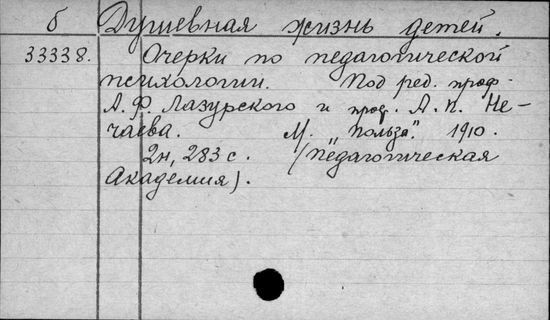 б Душевная жизнь детей.
33338. Очерки по педагогической
психологии. Под ред. проф.
А. Ф. Лазурского и проф. А. П. Не-
чаева. М. „Польза". 1910.
2н, 283 с. (Педагогическая
Академия).